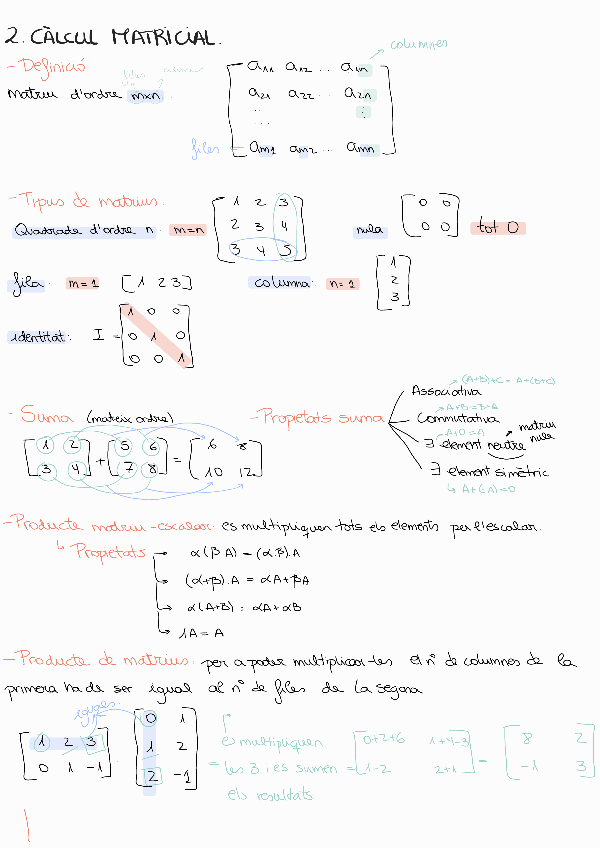 2. CÀLCUL MATRICIAL.
columnes
- Definició
Matriu d'ordre m×n.
a₁₁ a₁₂ ... a₁ₙ
a₂₁ a₂₂ ... a₂ₙ
files
aₘ₁ aₘ₂ ... aₘₙ
- Tipus de matrius.
Quadrada d'ordre n. m=n
1 2 3
2 3 4
3 4 5
nula
0 0
0 0
tot 0
fila: m=1 [1 2 3]
columna: n=1
1
2
3
identitat: I =
1 0 0
0 1 0
0 0 1
- Suma (mateix ordre)
[1 2
3 4] + [5 6
7 8] = [6 8
10 12]
- Propietats suma
(A+B)+C = A+(B+C)
Associativa
A+B = B+A
Commutativa
A+0=A
∃ element neutre → matriu nula
∃ element simètric
↳ A+(-A)=0
- Producte matriu-escalar: es multipliquen tots els elements per l'escalar.
↳ Propietats → α(β A) = (α.β).A
(α+β).A = αA+βA
α(A+B) = αA+αB
1A = A
- Producte de matrius: per a poder multiplicar-les el nº de columnes de la
primera ha de ser igual al nº de files de la segona
iguals
[1 2 3
0 1 -1] . [0 1
1 2
2 -1]
es multipliquen
= les 3 i es sumen
els resultats
= [0+2+6 1+4-3
1-2 2+1] = [8 2
-1 3]